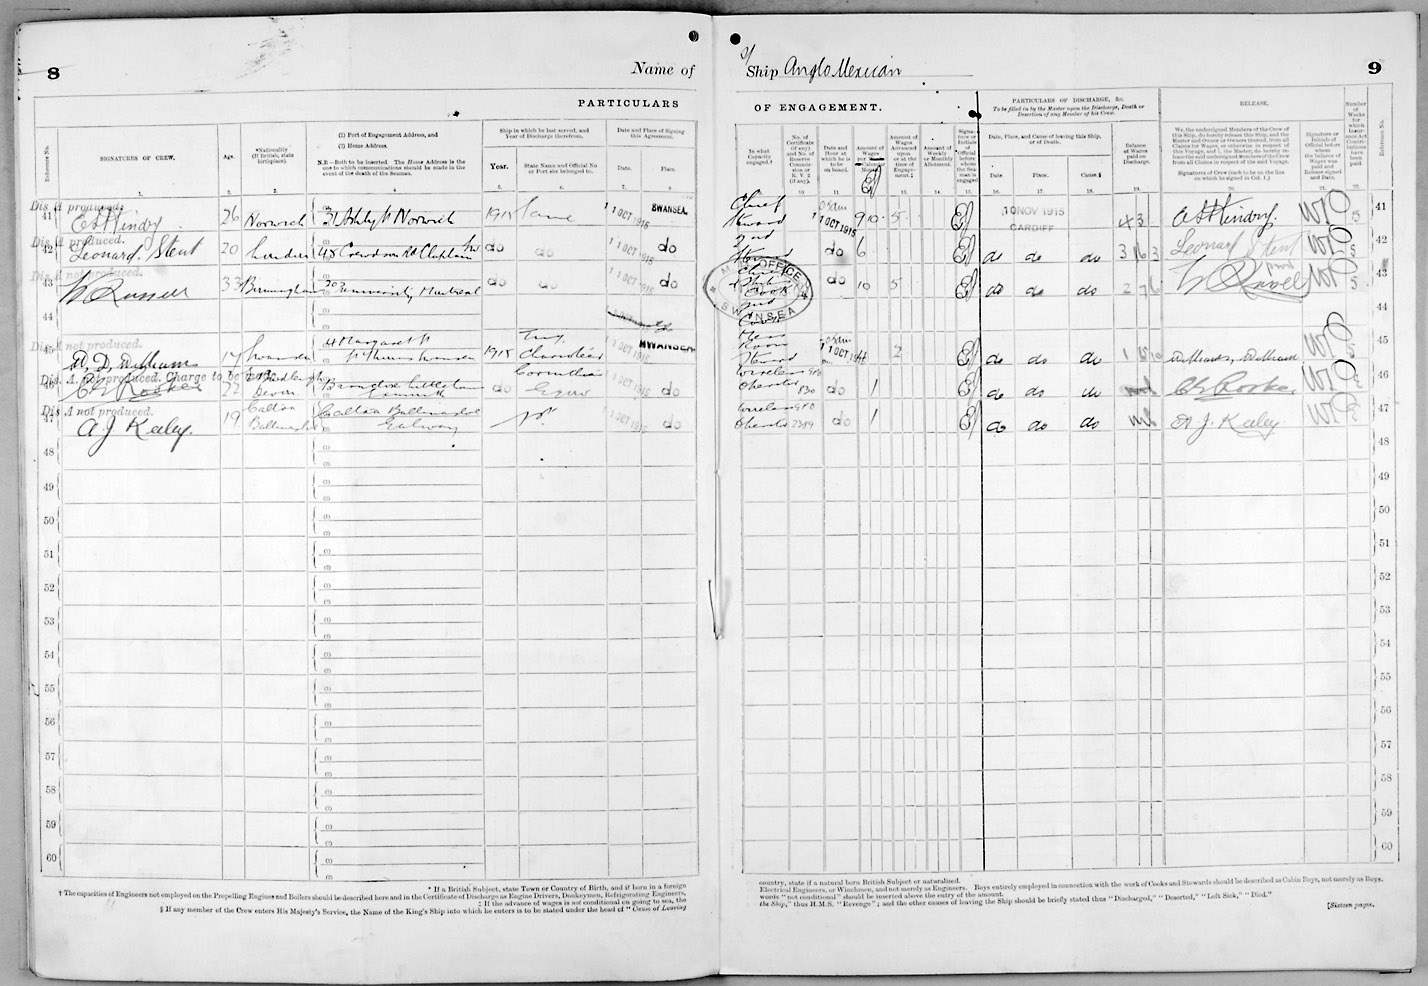 8
Name of
PARTICULARS
Reference No.
SIGNATURES OF CREW.
Age.
*Nationality
(If British, state
birthplace).
(1) Port of Engagement Address, and
(2) Home Address.
N.B.—Both to be inserted. The Home Address is the
one to which communications should be made in the
event of the death of the Seaman.
Ship in which he last served, and
Year of Discharge therefrom.
Year.
State Name and Official No.
or Port she belonged to.
Date and Place of Signing
this Agreement.
Date.
Place.
1. 2. 3. 4 5. 6. 7. 8
Dis A produced.
41 26 Norwich 31 Ashby St Norwich 1915 Same 11 OCT 1915 SWANSEA.
Dis A produced.
42 Leonard Stent 20 London do do 11 OCT 1915 do
Dis A not produced.
43 W Russell 33 Birmingham do do 11 OCT 1915 do
44
Dis A not produced.
45 D. D. Williams 17 Swansea 1915 11 OCT 1915 SWANSEA
Dis. A not produced. Charge to be made
46 22 Devon Exmouth do 11 OCT 1915 do
Dis A not produced.
47 A J Keeley. 19 Galway 11 OCT 1915 do
48
49
50
51
52
53
54
55
56
57
58
59
60
* If a British Subject, state Town or Country of Birth, and if born in a foreign
† The capacities of Engineers not employed on the Propelling Engines and Boilers should be described here and in the Certificate of Discharge as Engine Drivers, Donkeymen, Refrigerating Engineers,
‡ If the advance of wages is not conditional on going to sea, the
§ If any member of the Crew enters His Majesty's Service, the Name of the King's Ship into which he enters is to be stated under the head of "Cause of Leaving
9
Ship Anglo Mexican
OF ENGAGEMENT.
In what
Capacity
engaged.†
No. of
Certificate
(if any)
and No. of
Reserve
Commis-
sion or
R. V. 2
(if any).
Date and
Hour at
which he is
to be
on board.
Amount of
Wages
Amount of
Wages
Advanced
upon
or at the
time of
Engage-
ment.‡
Amount of
Weekly
or Monthly
Allotment.
Signa-
ture or
Initials of
Official
before
whom
the Sea-
man is
engaged
PARTICULARS OF DISCHARGE, &c.
To be filled in by the Master upon the Discharge, Death or
Desertion of any Member of his Crew.
Date, Place, and Cause of leaving this Ship,
or of Death.
Date.
Place.
Cause.§
Balance
of Wages
paid on
Discharge.
RELEASE.
We, the undersigned Members of the Crew of
this Ship, do hereby release this Ship, and the
Master and Owner or Owners thereof, from all
Claims for Wages, or otherwise, in respect of
the Voyage, and I, the Master, do hereby re-
lease the said undersigned Members of the Crew
from all Claims in respect of the said Voyage.
Signatures of Crew (each to be on the line
on which he signed in Col. 1.)
Signature or
Initials of
Official before
whom
the balance of
Wages was
paid and
Release signed
and Date.
Number
of
Weeks
for
which
Insur-
ance Act
Contri-
butions
have
been
paid.
Reference No.
10 11 13. 14. 15. 16. 17. 18. 19. 20. 21. 22.
Chief 11 OCT 1915 9 10 5 10 NOV 1915 CARDIFF 4 3 5 41
2nd do 6 do do do 3 16 3 Leonard Stent 5 42
Cook 10 5 do do do 5 43
SWANSEA
2nd
Cook 44
Mess
Room 11 OCT 1915 4 2 do do do 45
Wireless
Operator 830 do 1 do do do nil 46
Wireless
Operator do 1 do do do nil A J. Keeley 47
48
49
50
51
52
53
54
55
56
57
58
59
60
country, state if a natural born British Subject or naturalized.
Electrical Engineers, or Winchmen, and not merely as Engineers. Boys entirely employed in connection with the work of Cooks and Stewards should be described as Cabin Boys, not merely as Boys.
words "not conditional" should be inserted above the entry of the amount.
the Ship," thus H.M.S. "Revenge"; and the other causes of leaving the Ship should be briefly stated thus "Discharged," "Deserted," "Left Sick," "Died."
[Sixteen pages.